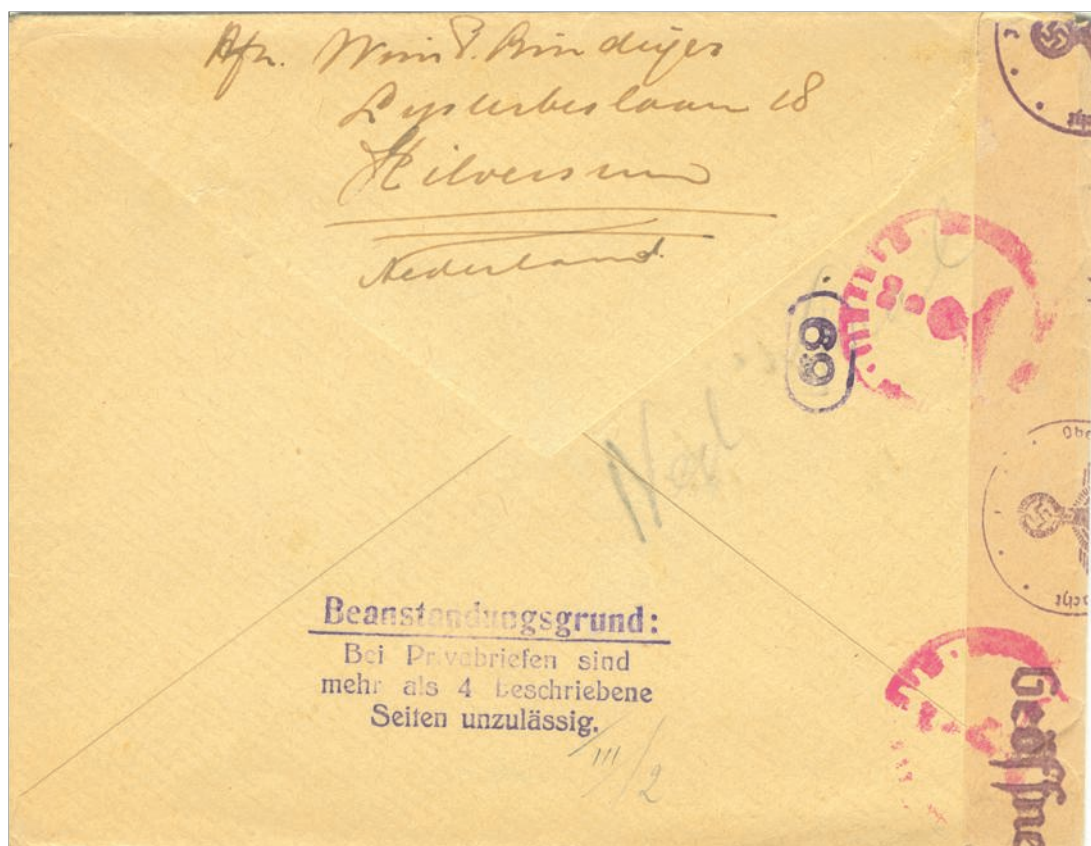 Afz. Wim P.
Lijsterbeslaan 18
Hilversum
Nederland.
69
Obe
cht
cht
Beanstandungsgrund:
Bei Privabriefen sind
mehr als 4 beschriebene
Seiten unzulässig.
III/2
Geöffne